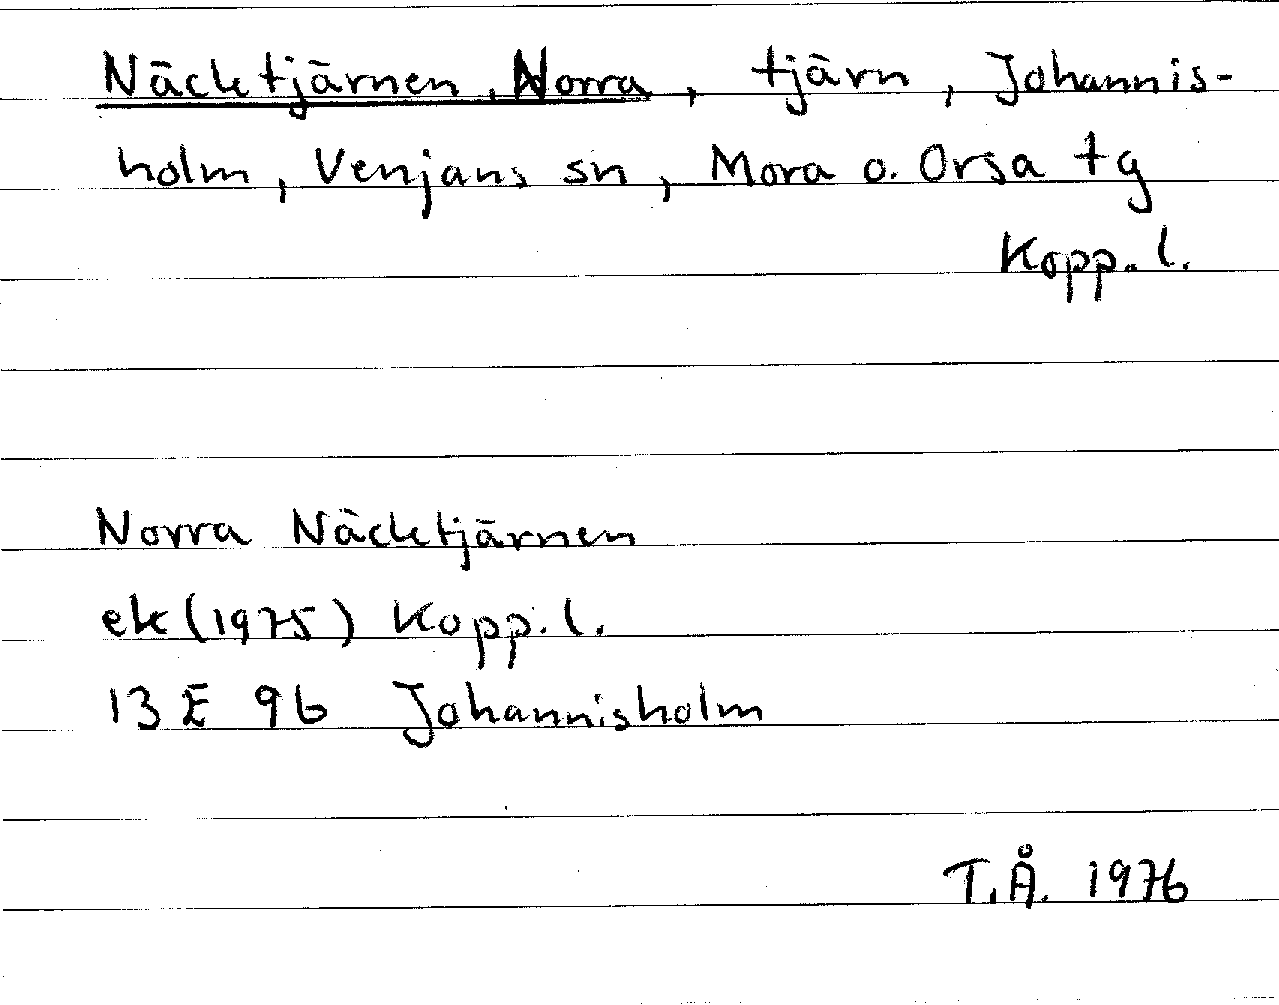 Näcktjärnen, Norra, tjärn, Johannis-
holm, Venjans sn, Mora o. Orsa tg
Kopp. l.
Norra Näcktjärnen
ek (1975) Kopp. l.
13 E 9b Johannisholm
T.Å. 1976